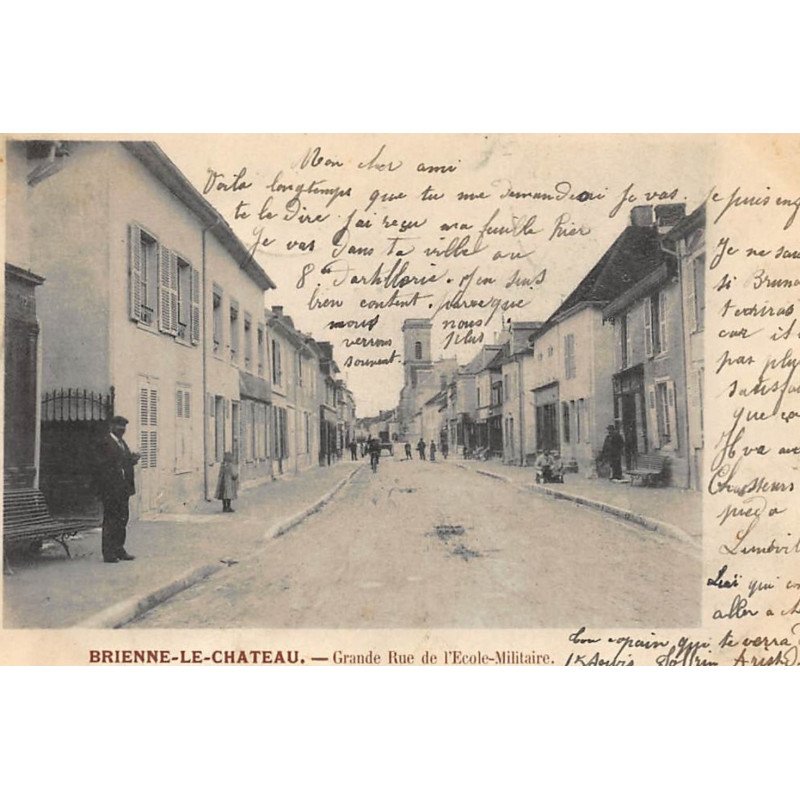 Mon cher ami
Voilà longtemps que tu me demandai Je vas
te le dire j'ai reçu ma feuille hier
Je vas dans ta ville au
8e d'artillerie. J'en suis
bien content. parceque
nous nous
verrons plus
souvent
Je puis eng
Je ne sau
si Brun
t'ecriras
car it e
pas plu
satisfa
que J'
Il va au
Chasseurs
pied a
Lunévil
Lui qui co
aller a ch
Ton copain qui te verra
Aristid
BRIENNE-LE-CHATEAU. — Grande Rue de l'Ecole-Militaire.